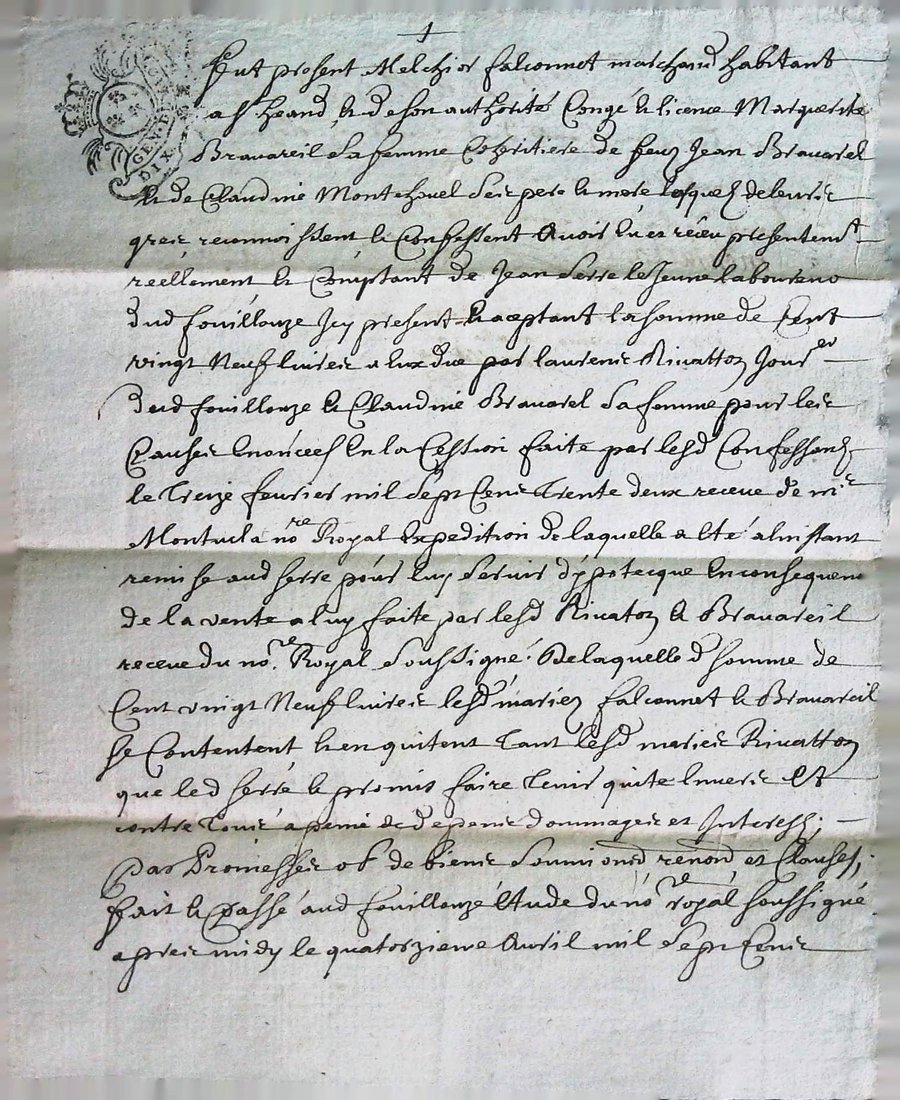 1
GEN. D
DIX
fut present Melchior falconnet marchand habitant
a St heand, & de son authorité Congé & licence Marguerite
Brauareil sa femme Coheritiere de feuz Jean Brauarel
& de Claudine Montehouel ses pere & mere lesquelz de leurs
gres reconnoissent & Confessent Auoir eu et reçeu presentemt
reellement & Comptant de Jean serre le Jeune laboureur
dud fouillouze Icy present & aceptant la somme de Cent
vingt Neuf liures a eux due par laurens Riuatton Jourer
dud fouillouze & Claudine Brauarel sa femme pour les
Causes enoncees en la Cession faite par lesd Confessantz
le Treize feurier mil sept Cens Trente deux receue de me
Montucla nore Royal Expedition de laquelle a eté a linstant
remise aud serre pour luy seruir dypotecque en consequence
de la vente a luy faite par lesd Riuaton & Brauareil
receue du nore Royal soussigné. De laquelle d somme de
Cent vingt Neuf liures lesd mariez falconnet & Brauareil
se Contentent & en quitent Tant lesd maries Riuatton
que led serre & promis faire Tenir quite enuers et
contre Tous a peine de depens dommages et Interestz;
Par Promesses ob de biens soumions renons et Clauses;
fait & passé aud fouillouze Etude du nore royal soussigné
apres midy le quatorzieme Auril mil sept Cens